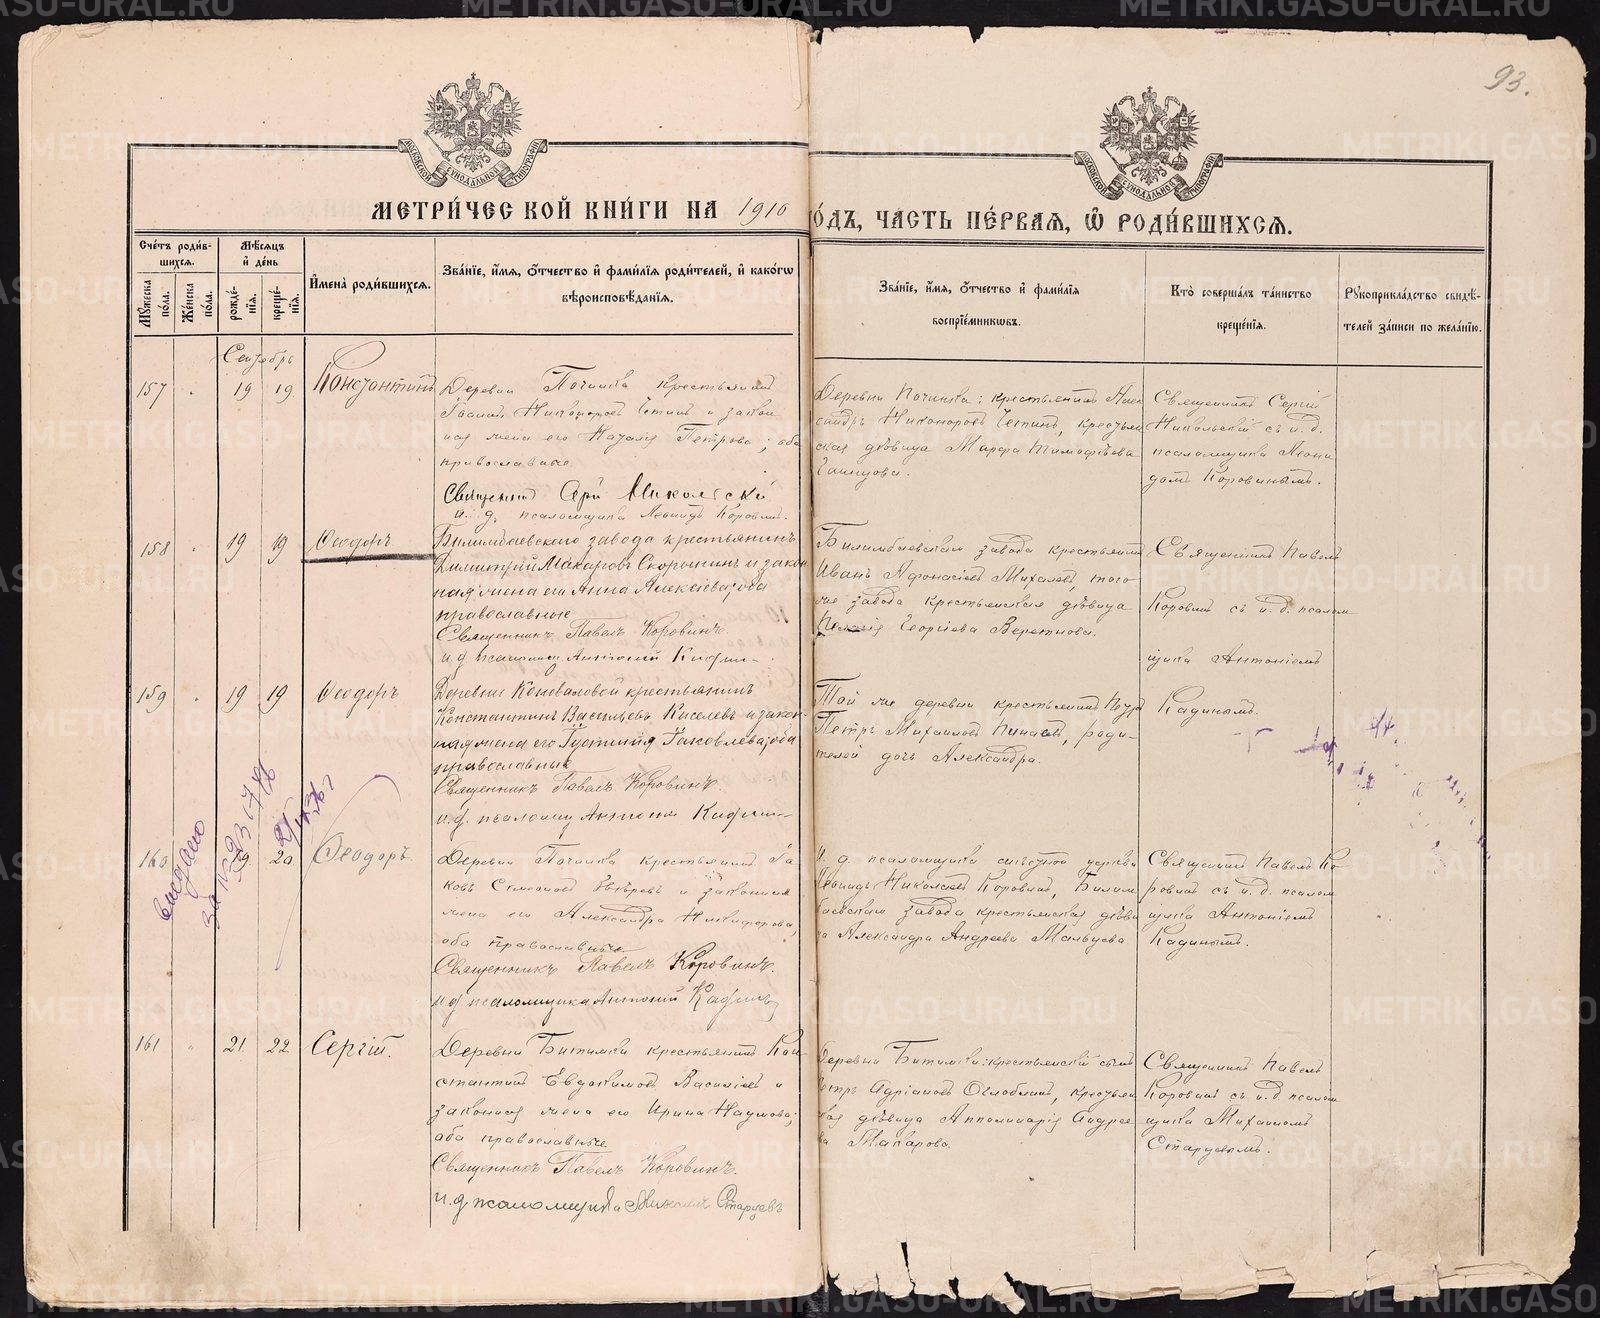 93.
МОСКОВСКОЙ СѴНОДАЛЬНОЙ ТИПОГРАФІИ
МОСКОВСКОЙ СѴНОДАЛЬНОЙ ТИПОГРАФІИ
МЕТРИ́ЧЕСКОЙ КНИ́ГИ НА 1910
ГО́ДЪ, ЧАСТЬ ПЕ́РВАЯ, Ѡ РОДИ́ВШИХСЯ.
Сче́тъ роди́вшихся.
Мꙋжеска по́ла.
Же́нска по́ла.
Мѣ́сяцъ и де́нь
рожде́нїя.
креще́нїя.
Имена̀ роди́вшихся.
Зва́нїе, и́мя, ѻ́тчество и фами́лїя роди́телей, и како́гѡ вѣроисповѣ́данїя.
Зва́нїе, и́мя, ѻ́тчество и фами́лїя воспрїе́мникѡвъ.
Кто̀ соверша́лъ та́инство креще́нїя.
Рꙋкоприкла́дство свидѣ́телей за́писи по жела́нїю.
Сентябрь
157 19 19 Константинъ
Деревни Починка крестьянинъ
Никаноровъ и закон
ная жена его Наталія Петрова; оба
православные
Священникъ Сергій Никольскій
и. д. псаломщика Леонидъ Коровинъ.
Деревни Починка: крестьянинъ Алек
сандръ Никаноровъ, крестьян
ская дѣвица Марѳа Тимофѣева
Священникъ Сергій
Никольскій съ и. д.
псаломщика Леони
домъ Коровинымъ.
158 19 19 Ѳеодоръ
Билимбаевскаго завода крестьянинъ
Димитрій Макаровъ Скорынинъ и закон
ная жена его Анна Алексѣева; оба
православные
Священникъ Павелъ Коровинъ.
и. д. псаломщ. Антоній Кадинъ
Билимбаевскаго завода крестьянинъ
Иванъ Афонасіевъ Михалевъ, того
же завода крестьянская дѣвица
Георгіева Веретнова.
Священникъ Павелъ
Коровинъ съ и. д. псалом
щика Антоніемъ
Кадинымъ.
159 19 19 Ѳеодоръ
Деревни Коноваловой крестьянинъ
Константинъ Васильевъ Киселевъ и закон
ная жена его Іустинія Іаковлева; оба
православные
Священникъ Павелъ Коровинъ.
и. д. псаломщ Антоній Кадинъ
Той же деревни крестьянинъ
Петръ Михаиловъ, роди
телей дочь Александра.
160 19 20 Ѳеодоръ
выдано
Деревни Починка крестьянинъ Іа
ковъ Симеоновъ Звѣревъ и законная
жена его Александра Никифорова,
оба православные
Священникъ Павелъ Коровинъ.
и. д. псаломщика Антоній Кадинъ
И. д. псаломщика мѣстной церкви
Леонидъ Николаевъ Коровинъ, Билим
баевскаго завода крестьянская дѣви
ца Александра Андреева Мальцева
Священникъ Павелъ Ко
ровинъ съ и. д. псалом
щика Антоніемъ
Кадинымъ.
161 21 22 Сергій.
Деревни Битимки крестьянинъ Кон
стантинъ Евдокимовъ Василіевъ и
законная жена его Ирина Наумова;
оба православные
Священникъ Павелъ Коровинъ.
и. д. псаломщика Михаилъ Старцевъ
Деревни Битимки: крестьянскій сынъ
Петръ Адріановъ Оглоблинъ, крестьян
ская дѣвица Апполинарія Андрее
ва Макарова.
Священникъ Павелъ
Коровинъ съ и. д. псалом
щика Михаиломъ
Старцевымъ.
METRIKI.GASO-URAL.RU